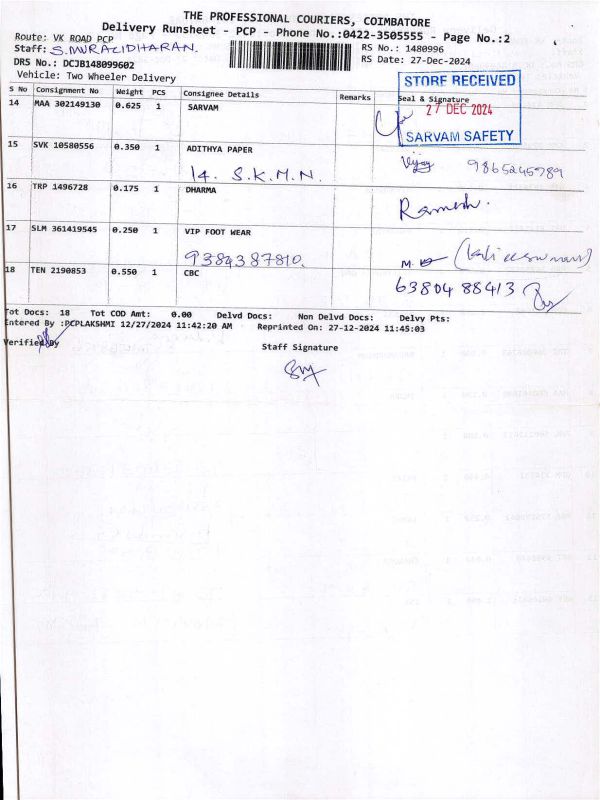 THE PROFESSIONAL COURIERS, COIMBATORE
Delivery Runsheet - PCP - Phone No.:0422-3505555 - Page No.:2
Route: VK ROAD PCP
Staff: S.MURALIDHARAN.
RS No.: 1480996
DRS No.: DCJB148099602
RS Date: 27-Dec-2024
Vehicle: Two Wheeler Delivery
S No Consignment No Weight PCS Consignee Details Remarks Seal & Signature
STORE RECEIVED
27 DEC 2024
SARVAM SAFETY
14 MAA 302149130 0.625 1 SARVAM
15 SVK 10580556 0.350 1 ADITHYA PAPER
14. S.K.M.N.
Vijay 9865245789
16 TRP 1496728 0.175 1 DHARMA
Ramesh.
17 SLM 361419545 0.250 1 VIP FOOT WEAR
9384387810.
M.
18 TEN 2190853 0.550 1 CBC
6380488413
Tot Docs: 18 Tot COD Amt: 0.00 Delvd Docs: Non Delvd Docs: Delvy Pts:
Entered By :PCPLAKSHMI 12/27/2024 11:42:20 AM Reprinted On: 27-12-2024 11:45:03
Verified By
Staff Signature